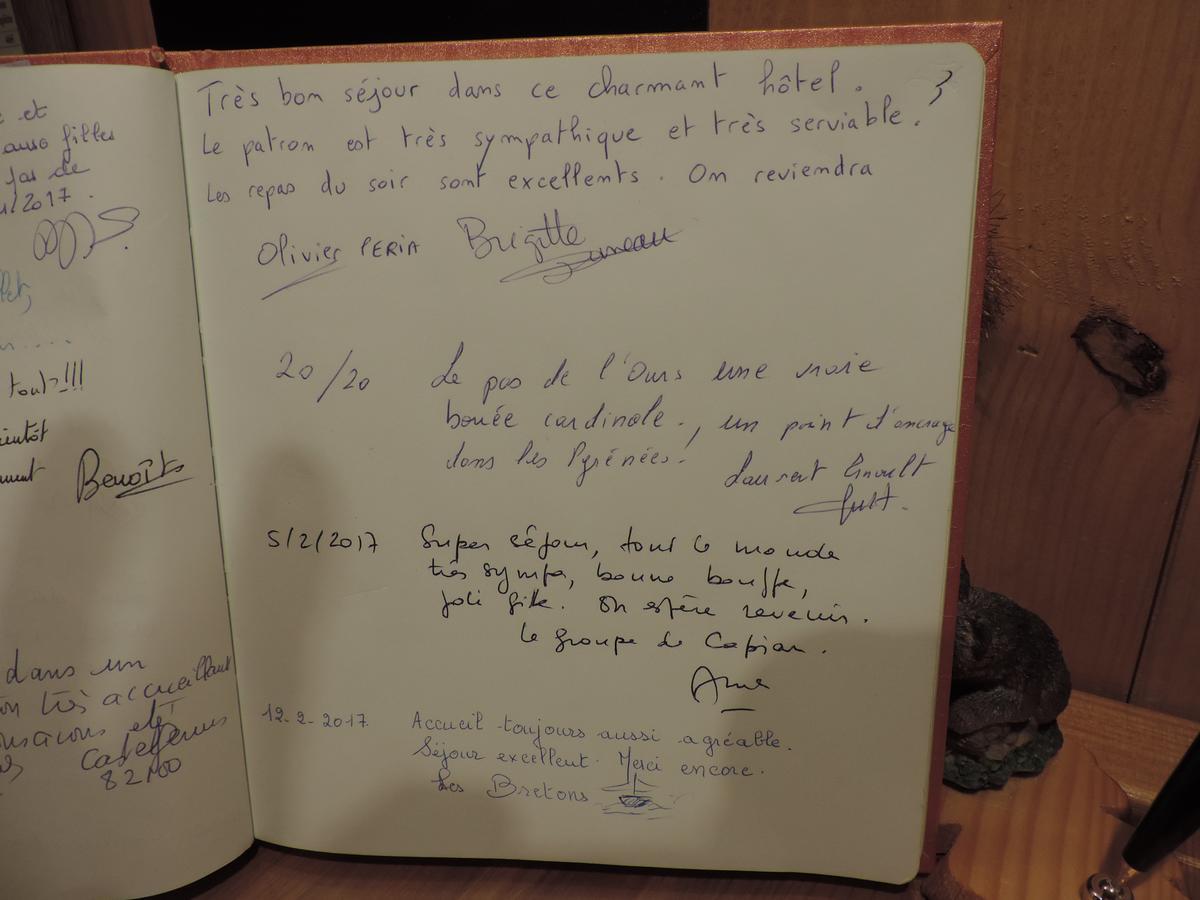 et
filles
de
/2017.
tout>!!!
Benoîts
dans un
très accueillant
82100
3
Très bon séjour dans ce charmant hôtel.
Le patron est très sympathique et très serviable.
Les repas du soir sont excellents. On reviendra
Olivier PERIA Brigitte
20/20 Le pas de l'Ours une vraie
bouée cardinale., un point d'ancrage
dans les Pyrénées.
Laurent
5/2/2017 Super séjour, tout le monde
très sympa, bonne bouffe,
joli gîte. On espère revenir.
le groupe de Capian.
Anne
12-2-2017 Accueil toujours aussi agréable.
Séjour excellent. Merci encore.
Les Bretons